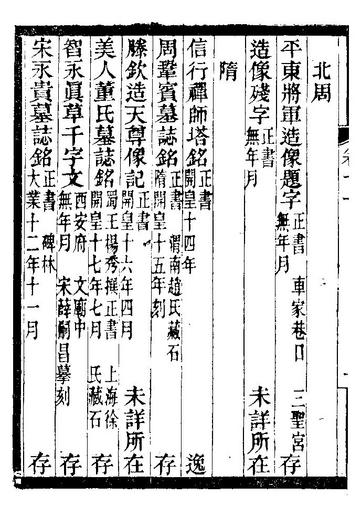 北周
平東將軍造像題字 正書 無年月 車家巷口 三聖宮 存
造像殘字 正書 無年月 未詳所在
隋
信行禪師塔銘 正書 開皇十四年 逸
周鞏賓墓誌銘 正書 隋開皇十五年刻 渭南趙氏藏石 存
滕欽造天尊像記 正書 開皇十六年四月 未詳所在
美人董氏墓誌銘 蜀王楊秀撰正書 開皇十七年七月 上海徐氏藏石 存
智永眞草千字文 西安府文廟中 無年月 宋薛嗣昌摹刻 存
宋永貴墓誌銘 正書 碑林 大業十二年十一月 存